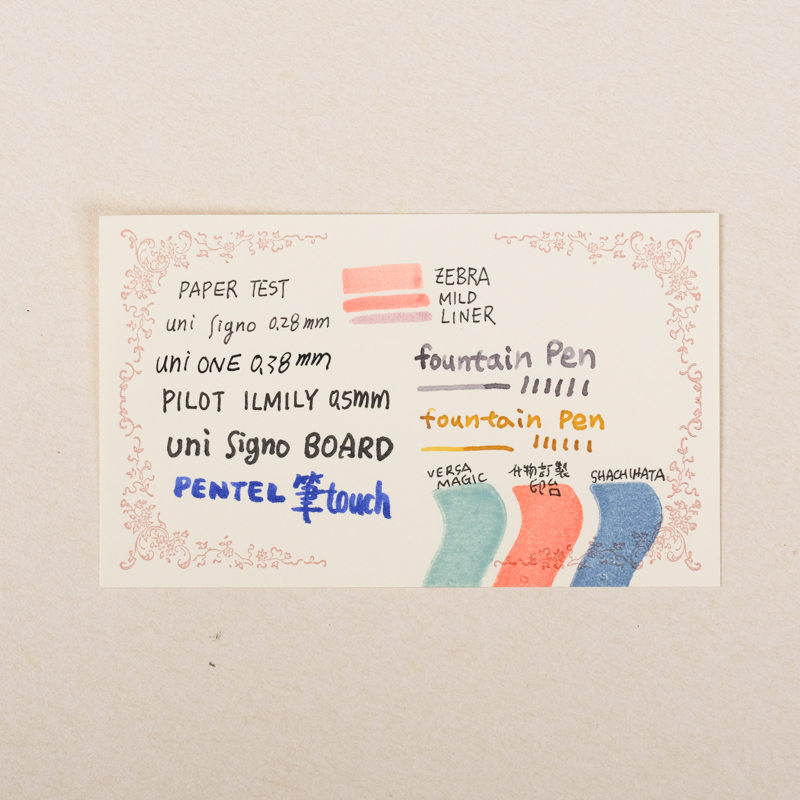 PAPER TEST
uni Signo 0.28mm
uni ONE 0.38mm
PILOT ILMILY 0.5mm
uni Signo BOARD
PENTEL 筆touch
ZEBRA
MILD
LINER
fountain Pen
fountain Pen
VERSA
MAGIC
什物訂製
印台
SHACHIHATA